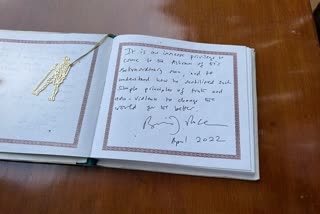 It is an immense privilege to
come to the Ashram of this
extraordinary man, and to
understand how he mobilised such
simple principles of truth and
non-violence to change the
world for the better.
April 2022